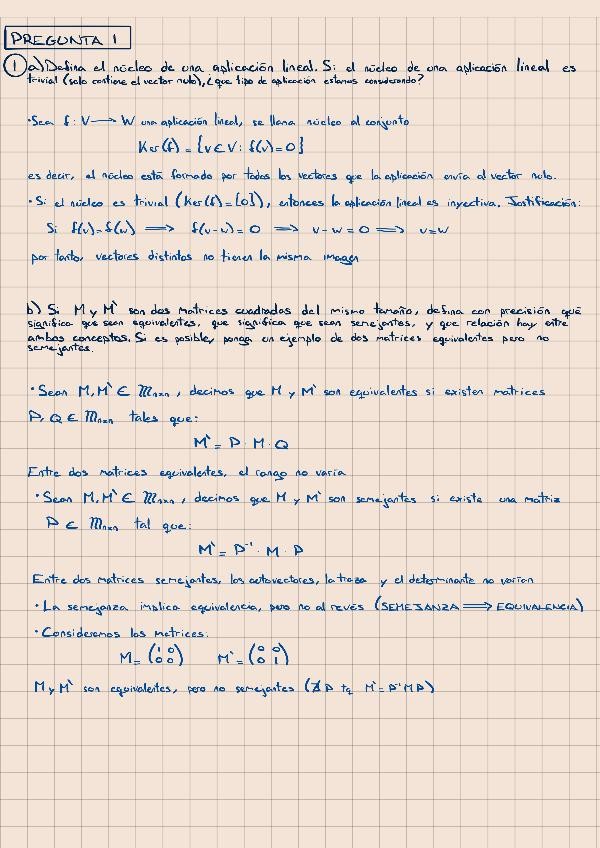 PREGUNTA 1
① a) Defina el núcleo de una aplicación lineal. Si el núcleo de una aplicación lineal es
trivial (solo contiene el vector nulo), ¿que tipo de aplicación estamos considerando?
· Sea f: V → W una aplicación lineal, se llama núcleo al conjunto
Ker(f) = {v ∈ V: f(v) = 0}
es decir, el núcleo está formado por todos los vectores que la aplicación envía al vector nulo.
· Si el núcleo es trivial (Ker(f) = {0}), entonces la aplicación lineal es inyectiva. Justificación:
Si f(v) = f(w) ⟹ f(v-w) = 0 ⟹ v-w = 0 ⟹ v=w
por tanto, vectores distintos no tienen la misma imagen
b) Si M y M` son dos matrices cuadradas del mismo tamaño, defina con precisión qué
significa que sean equivalentes, que significa que sean semejantes, y que relación hay entre
ambos conceptos. Si es posible, ponga un ejemplo de dos matrices equivalentes pero no
semejantes.
· Sean M, M` ∈ Mₙₓₙ, decimos que M y M` son equivalentes si existen matrices
P, Q ∈ Mₙₓₙ tales que:
M` = P · M · Q
Entre dos matrices equivalentes, el rango no varía
· Sean M, M` ∈ Mₙₓₙ, decimos que M y M` son semejantes si existe una matriz
P ∈ Mₙₓₙ tal que:
M` = P⁻¹ · M · P
Entre dos matrices semejantes, los autovectores, la traza y el determinante no varían
· La semejanza implica equivalencia, pero no al revés (SEMEJANZA ⟹ EQUIVALENCIA)
· Consideremos las matrices:
M = (1 0 / 0 0) M` = (0 0 / 0 1)
M y M` son equivalentes, pero no semejantes (∄ P tq M` = P⁻¹MP)